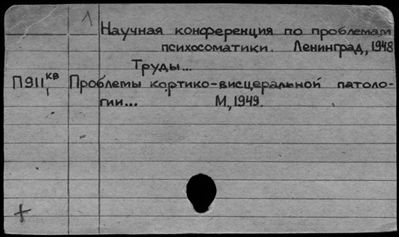 1
Научная конференция по проблемам
психосоматики. Ленинград, 1948
Труды...
П911, кв Проблемы кортико-висцеральной патоло-
гии... М, 1949.
+